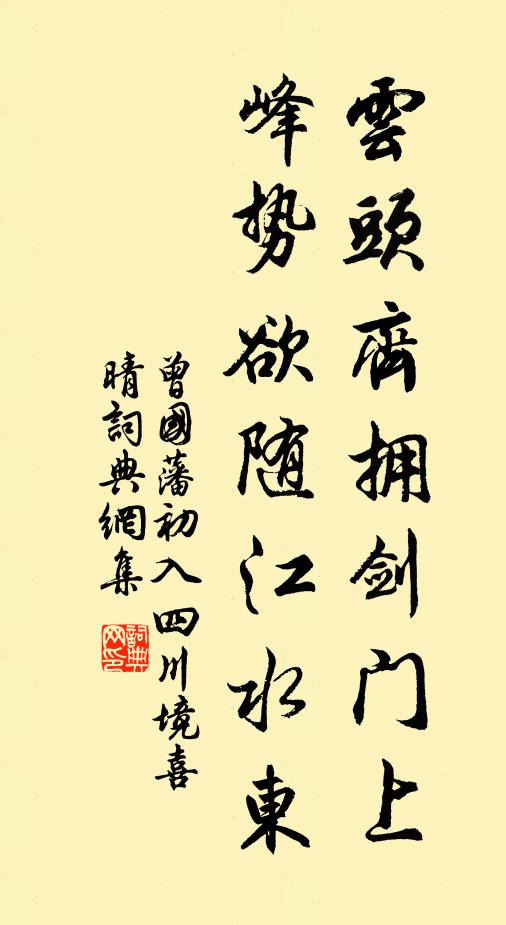 雲頭齊拥劍门上
峰勢欲随江水東
曾國藩初入四川境喜
晴詞典網集
詞典
网印